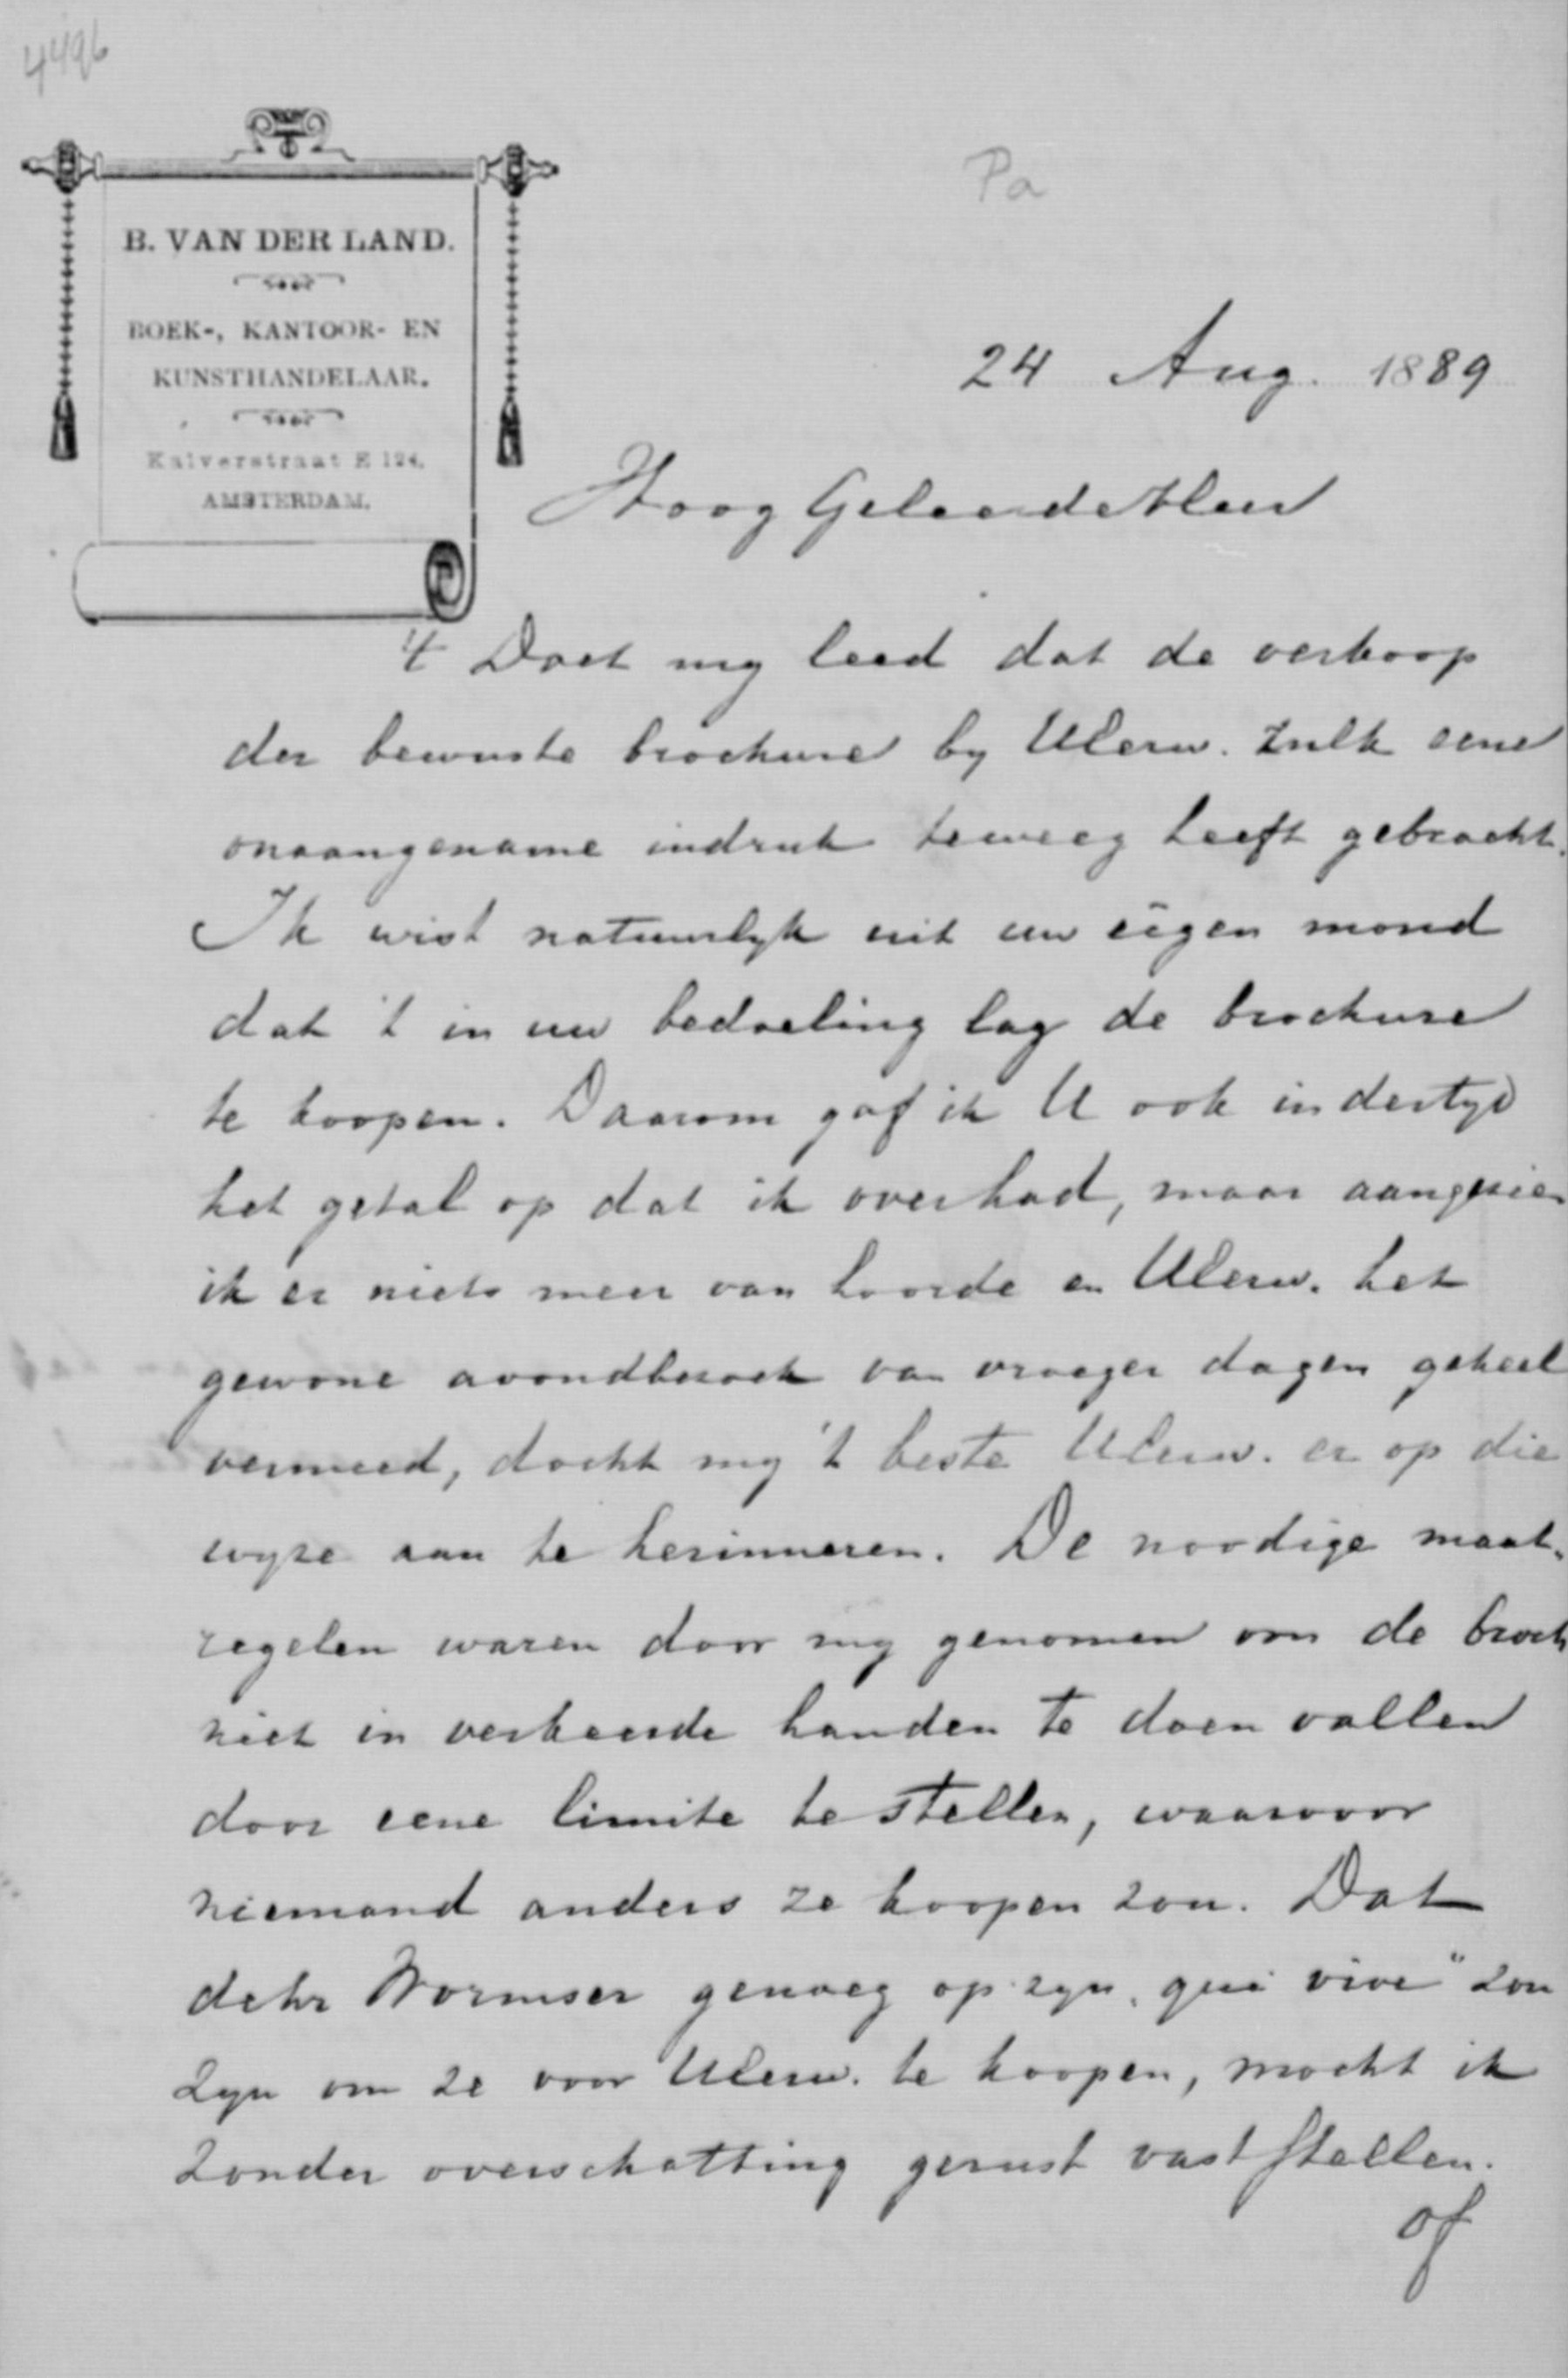 4496
Pa
B. VAN DER LAND.
BOEK-, KANTOOR- EN
KUNSTHANDELAAR.
Kalverstraat E 124.
AMSTERDAM.
24 Aug. 1889
Hoog Geleerde Heer
't Doet my leed dat de verkoop
der bewuste brochure by UEerw. zulk eene
onaangename indruk teweeg heeft gebracht.
Ik wist natuurlyk uit uw eigen mond
dat 't in uw bedoeling lag de brochure
te koopen. Daarom gaf ik U ook indertyd
het getal op dat ik overhad, maar aangezien
ik er niets meer van hoorde en UEerw. het
gewone avondbezoek van vroeger dagen geheel
vermeed, docht my 't beste UEerw. er op die
wyze aan te herinneren. De noodige maat-
regelen waren door my genomen om de broch
niet in verkeerde handen te doen vallen
door eene limite te stellen, waarvoor
niemand anders ze koopen zou. Dat
de hr Wormser genoeg op zyn „qui vive" zou
zyn om ze voor UEerw. te koopen, mocht ik
zonder overschatting gerust vaststellen.
of